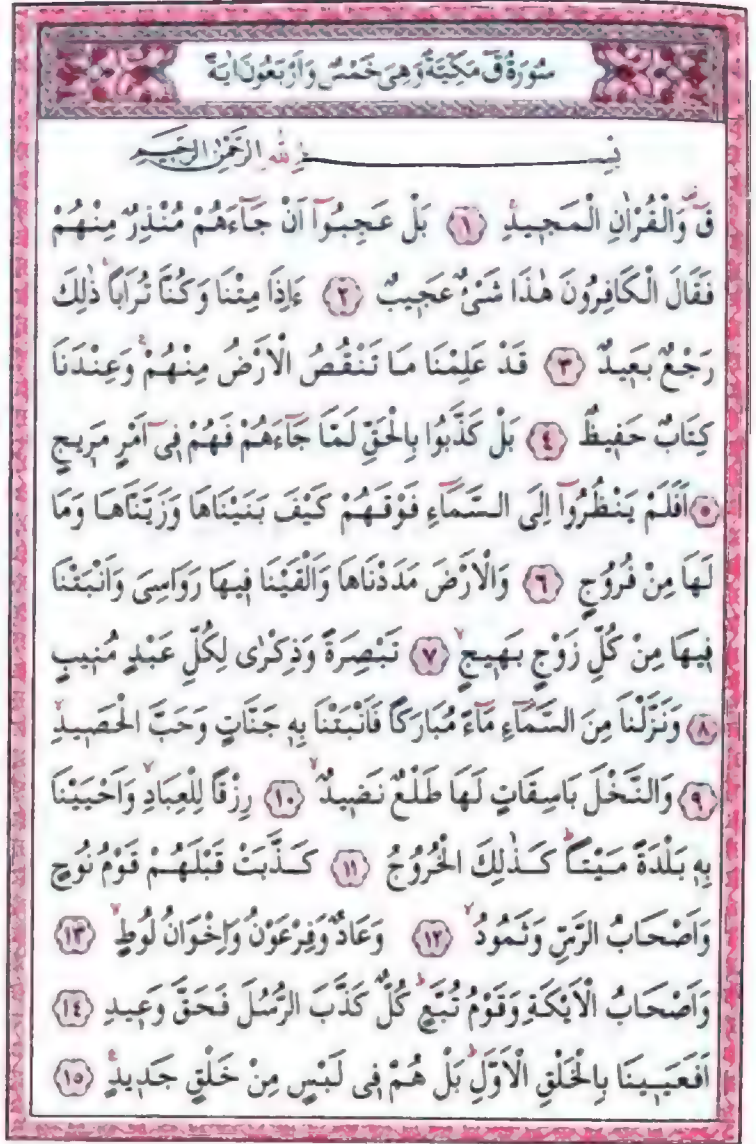 سُورَةُ قٓ مَكِّيَّةٌ وَهِيَ خَمْسٌ وَاَرْبَعُونَ اٰيَةً
بِسْمِ اللّٰهِ الرَّحْمٰنِ الرَّحِيمِ
قٓ وَالْقُرْاٰنِ الْمَجِيدِ ﴿١﴾ بَلْ عَجِبُٓوا اَنْ جَٓاءَهُمْ مُنْذِرٌ مِنْهُمْ
فَقَالَ الْكَافِرُونَ هٰذَا شَيْءٌ عَجِيبٌ ﴿٢﴾ ءَاِذَا مِتْنَا وَكُنَّا تُرَاباً ذٰلِكَ
رَجْعٌ بَعِيدٌ ﴿٣﴾ قَدْ عَلِمْنَا مَا تَنْقُصُ الْاَرْضُ مِنْهُمْ وَعِنْدَنَا
كِتَابٌ حَفِيظٌ ﴿٤﴾ بَلْ كَذَّبُوا بِالْحَقِّ لَمَّا جَٓاءَهُمْ فَهُمْ فِٓى اَمْرٍ مَرِيجٍ
﴿٥﴾ اَفَلَمْ يَنْظُرُٓوا اِلَى السَّمَٓاءِ فَوْقَهُمْ كَيْفَ بَنَيْنَاهَا وَزَيَّنَّاهَا وَمَا
لَهَا مِنْ فُرُوجٍ ﴿٦﴾ وَالْاَرْضَ مَدَدْنَاهَا وَاَلْقَيْنَا فِيهَا رَوَاسِىَ وَاَنْبَتْنَا
فِيهَا مِنْ كُلِّ زَوْجٍ بَهِيجٍ ﴿٧﴾ تَبْصِرَةً وَذِكْرٰى لِكُلِّ عَبْدٍ مُنِيبٍ
﴿٨﴾ وَنَزَّلْنَا مِنَ السَّمَٓاءِ مَٓاءً مُبَارَكاً فَاَنْبَتْنَا بِهِ جَنَّاتٍ وَحَبَّ الْحَصِيدِ
﴿٩﴾ وَالنَّخْلَ بَاسِقَاتٍ لَهَا طَلْعٌ نَضِيدٌ ﴿١٠﴾ رِزْقاً لِلْعِبَادِ وَاَحْيَيْنَا
بِهِ بَلْدَةً مَيْتاً كَذٰلِكَ الْخُرُوجُ ﴿١١﴾ كَذَّبَتْ قَبْلَهُمْ قَوْمُ نُوحٍ
وَاَصْحَابُ الرَّسِّ وَثَمُودُ ﴿١٢﴾ وَعَادٌ وَفِرْعَوْنُ وَاِخْوَانُ لُوطٍ ﴿١٣﴾
وَاَصْحَابُ الْاَيْكَةِ وَقَوْمُ تُبَّعٍ كُلٌّ كَذَّبَ الرُّسُلَ فَحَقَّ وَعِيدِ ﴿١٤﴾
اَفَعَيِينَا بِالْخَلْقِ الْاَوَّلِ بَلْ هُمْ فِى لَبْسٍ مِنْ خَلْقٍ جَدِيدٍ ﴿١٥﴾